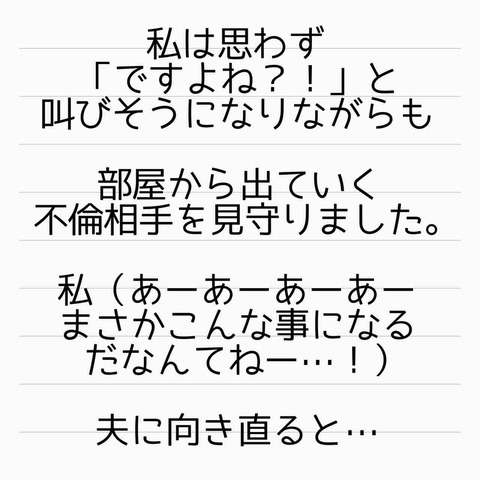 私は思わず
「ですよね？！」と
叫びそうになりながらも
部屋から出ていく
不倫相手を見守りました。
私（あーあーあーあー
まさかこんな事になる
だなんてねー…！）
夫に向き直ると…